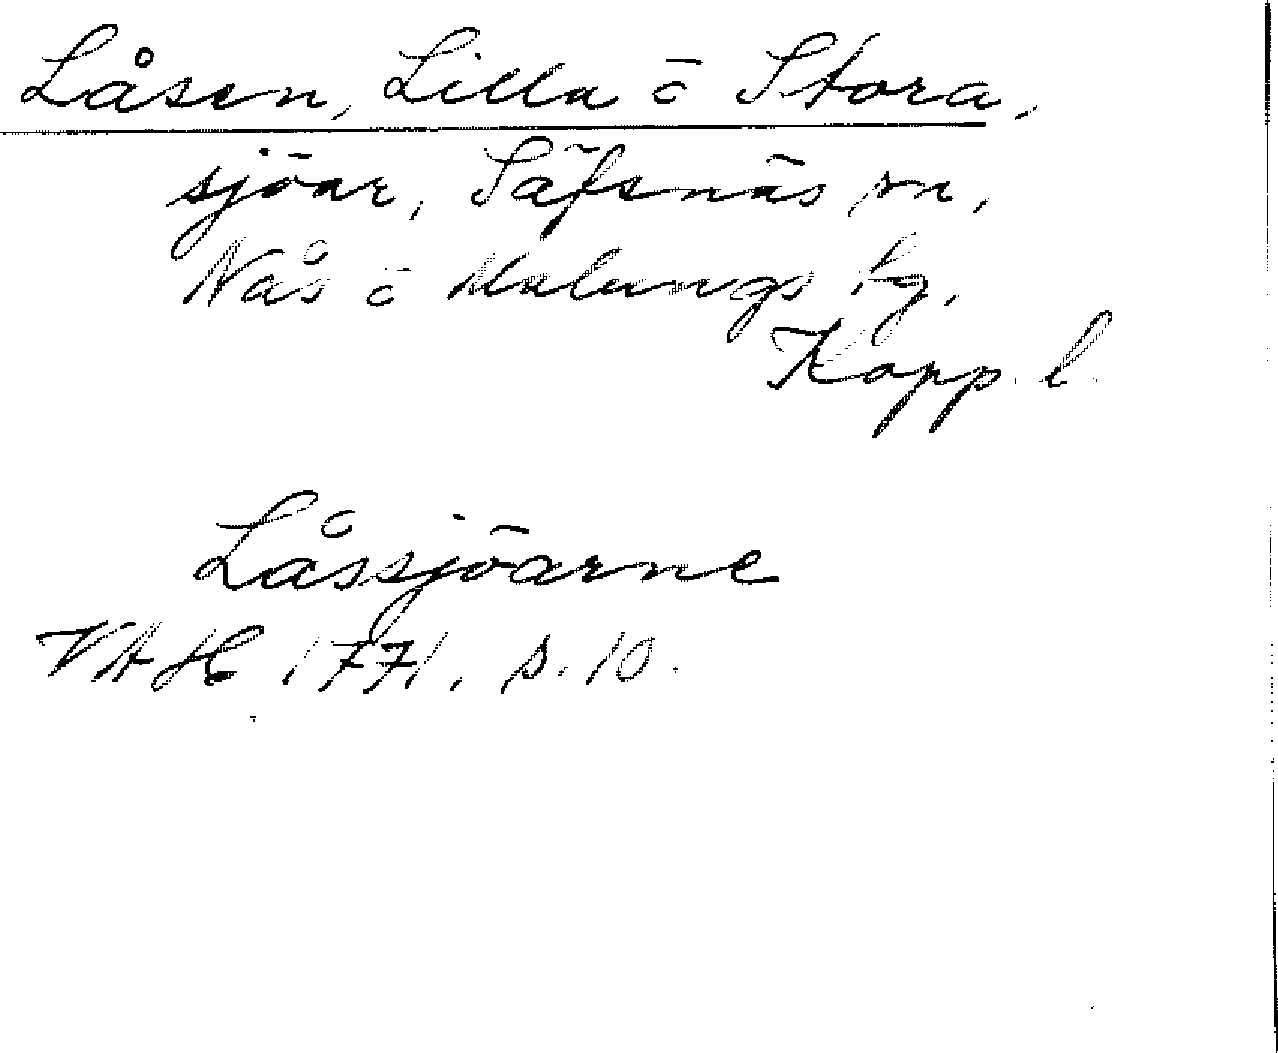 Låsen, Lilla o Stora,
sjöar, Säfsnäs sn,
Nås o Malungs tg,
Kopp. l.
Låssjöarne
VAH 1771. s. 10.